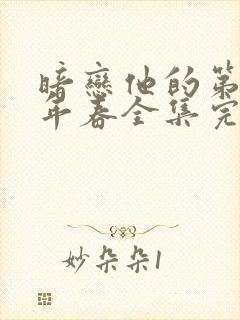 暗戀他的第
年春全集完
妙朵朵1